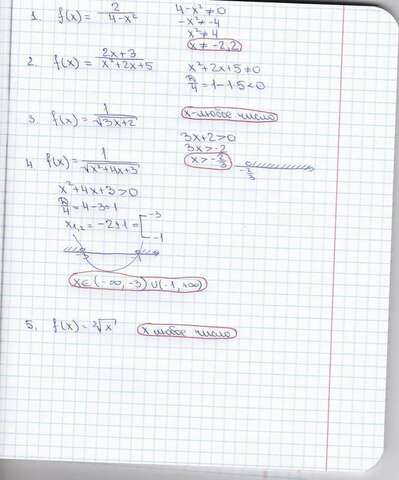 1. f(x) = 2/(4-x²) 4-x²≠0
-x²≠-4
x²≠4
x≠-2,2
2. f(x) = (2x+3)/(x²+2x+5) x²+2x+5≠0
D/4 = 1-1·5<0
x-любое число
3. f(x) = 1/√(3x+2)
3x+2>0
3x>-2
x>-2/3 -2/3
4. f(x) = 1/√(x²+4x+3)
x²+4x+3>0
D/4 = 4-3=1
x₁,₂ = -2±1 = [-3
-1
-3 -1
x∈(-∞,-3)∪(-1,+∞)
5. f(x) = ³√x x любое число